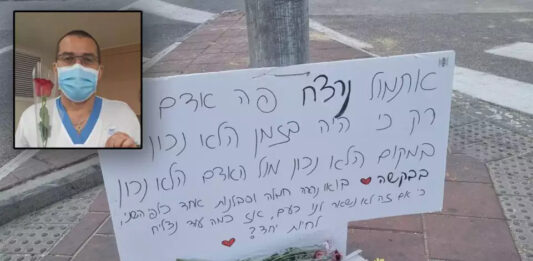 אתמול נרצח פה אדם
רק כי היה בזמן הלא נכון
במקום הלא נכון מול האדם הלא נכון
בבקשה ❤ בואו נהיה חמלה וסבלנות אחד כלפי השני,
כי אם זה לא נשאר לנו כעם, אז כמה עוד נצליח
לחיות יחד?
❤